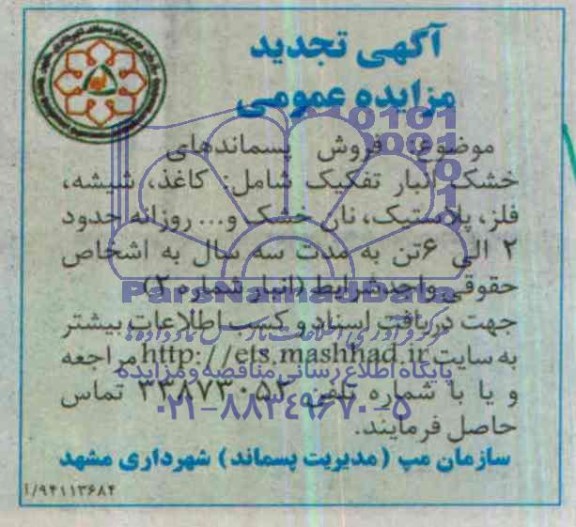 آگهی تجدید
مزایده عمومی
موضوع: فروش پسماندهای
خشک انبار تفکیک شامل: کاغذ، شیشه،
فلز، پلاستیک، نان خشک و... روزانه حدود
۲ الی ۶تن به مدت سه سال به اشخاص
حقوقی واجدشرایط (انبار شماره ۲)
جهت دریافت اسناد و کسب اطلاعات بیشتر
به سایت http://ets.mashhad.ir مراجعه
و یا با شماره تلفن ۳۳۸۷۳۰۵۲ تماس
حاصل فرمایند.
سازمان مپ (مدیریت پسماند) شهرداری مشهد
۹۴۱۱۳۶۸۴/آ
ParsNamadData
پایگاه اطلاع رسانی مناقصه و مزایده
۰۲۱-۸۸۳۴۹۶۷۰-۵